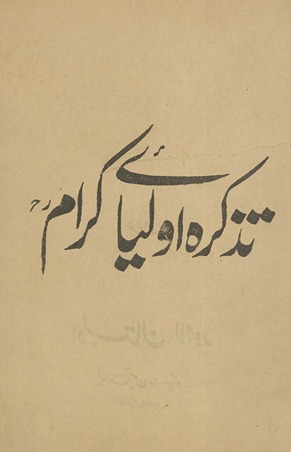 تذکرہ اولیائے کرامؒ